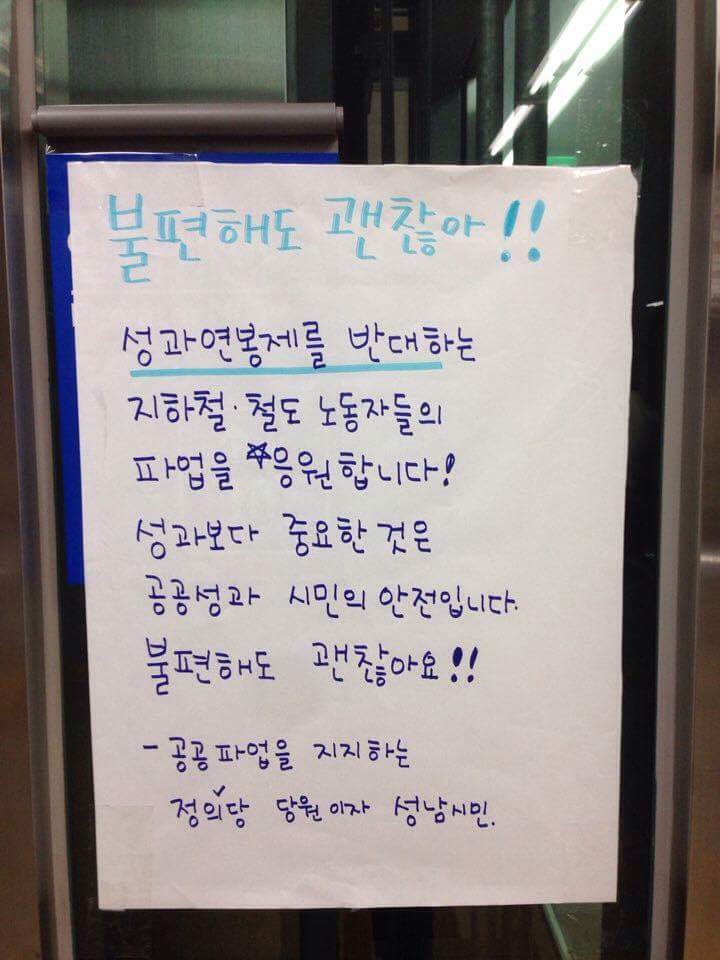 불편해도 괜찮아!!
성과연봉제를 반대하는
지하철·철도 노동자들의
파업을 ☆응원합니다!
성과보다 중요한 것은
공공성과 시민의 안전입니다.
불편해도 괜찮아요!!
- 공공파업을 지지하는
정의당 당원이자 성남시민.